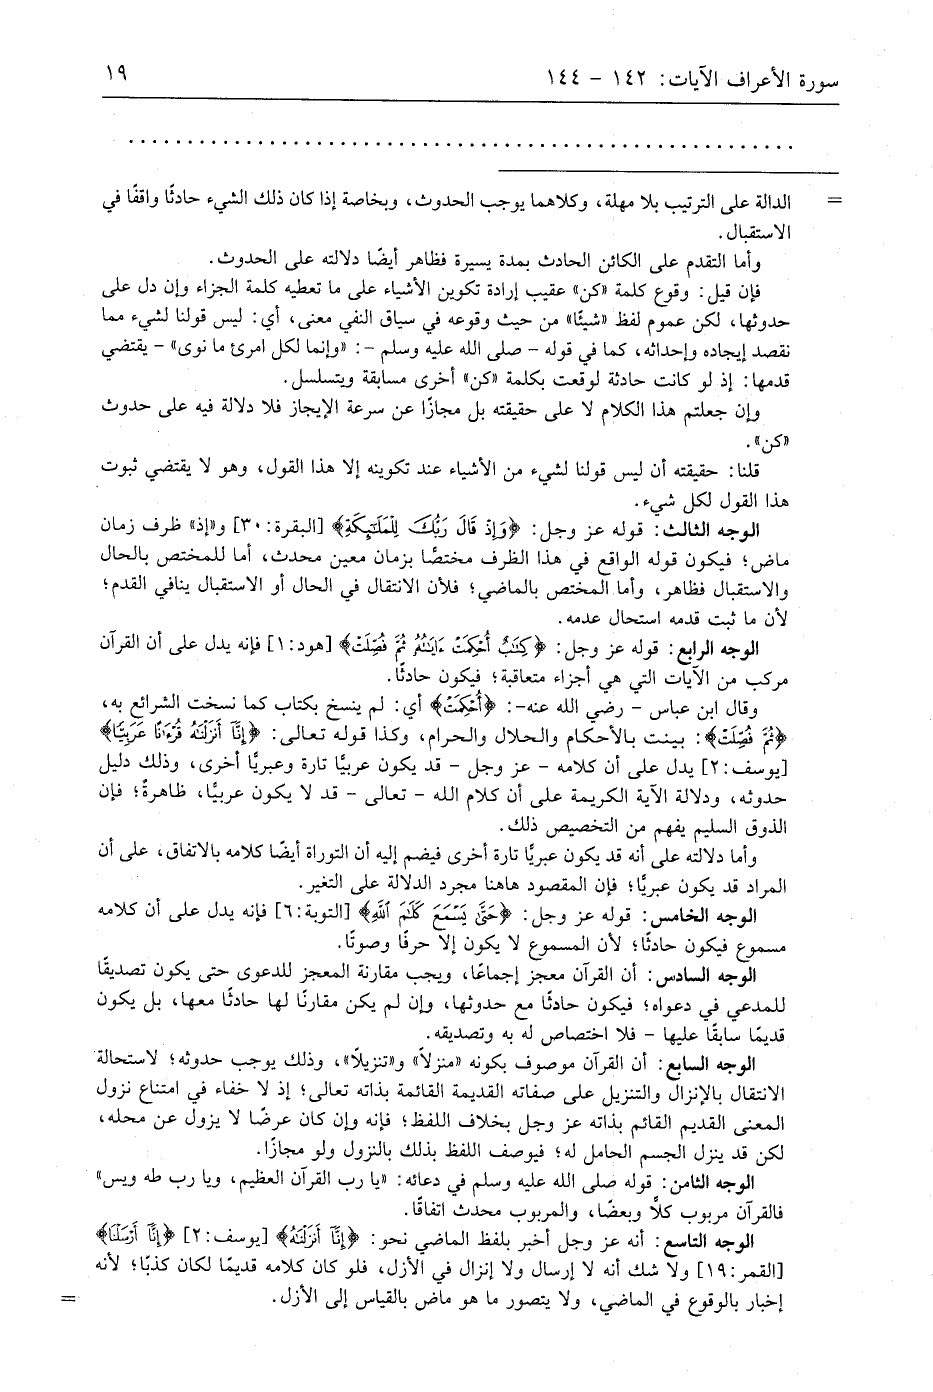 سورة الأعراف الآيات: ١٤٢ – ١٤٤
١٩
= الدالة على الترتيب بلا مهلة، وكلاهما يوجب الحدوث، وبخاصة إذا كان ذلك الشيء حادثًا واقفًا في
الاستقبال.
وأما التقدم على الكائن الحادث بمدة يسيرة فظاهر أيضًا دلالته على الحدوث.
فإن قيل: وقوع كلمة «كن» عقيب إرادة تكوين الأشياء على ما تعطيه كلمة الجزاء وإن دل على
حدوثها، لكن عموم لفظ «شيئًا» من حيث وقوعه في سياق النفي معنى، أي: ليس قولنا لشيء مما
نقصد إيجاده وإحداثه، كما في قوله – صلى الله عليه وسلم –: «وإنما لكل امرئ ما نوى» – يقتضي
قدمها: إذ لو كانت حادثة لوقعت بكلمة «كن» أخرى مسابقة ويتسلسل.
وإن جعلتم هذا الكلام لا على حقيقته بل مجازًا عن سرعة الإيجاز فلا دلالة فيه على حدوث
«كن».
قلنا: حقيقته أن ليس قولنا لشيء من الأشياء عند تكوينه إلا هذا القول، وهو لا يقتضي ثبوت
هذا القول لكل شيء.
الوجه الثالث: قوله عز وجل: ﴿وَإِذْ قَالَ رَبُّكَ لِلْمَلَٰٓئِكَةِ﴾ [البقرة: ٣٠] و«إذ» ظرف زمان
ماض؛ فيكون قوله الواقع في هذا الظرف مختصًا بزمان معين محدث، أما للمختص بالحال
والاستقبال فظاهر، وأما المختص بالماضي؛ فلأن الانتقال في الحال أو الاستقبال ينافي القدم؛
لأن ما ثبت قدمه استحال عدمه.
الوجه الرابع: قوله عز وجل: ﴿كِتَٰبٌ أُحْكِمَتْ ءَايَٰتُهُۥ ثُمَّ فُصِّلَتْ﴾ [هود: ١] فإنه يدل على أن القرآن
مركب من الآيات التي هي أجزاء متعاقبة؛ فيكون حادثًا.
وقال ابن عباس – رضي الله عنه–: ﴿أُحْكِمَتْ﴾ أي: لم ينسخ بكتاب كما نسخت الشرائع به،
﴿ثُمَّ فُصِّلَتْ﴾: بينت بالأحكام والحلال والحرام، وكذا قوله تعالى: ﴿إِنَّآ أَنزَلْنَٰهُ قُرْءَٰنًا عَرَبِيًّا﴾
[يوسف: ٢] يدل على أن كلامه – عز وجل – قد يكون عربيًا تارة وعبريًا أخرى، وذلك دليل
حدوثه، ودلالة الآية الكريمة على أن كلام الله – تعالى – قد لا يكون عربيًا، ظاهرةٌ؛ فإن
الذوق السليم يفهم من التخصيص ذلك.
وأما دلالته على أنه قد يكون عبريًا تارة أخرى فيضم إليه أن التوراة أيضًا كلامه بالاتفاق، على أن
المراد قد يكون عبريًا؛ فإن المقصود هاهنا مجرد الدلالة على التغير.
الوجه الخامس: قوله عز وجل: ﴿حَتَّىٰ يَسْمَعَ كَلَٰمَ ٱللَّهِ﴾ [التوبة: ٦] فإنه يدل على أن كلامه
مسموع فيكون حادثًا؛ لأن المسموع لا يكون إلا حرفًا وصوتًا.
الوجه السادس: أن القرآن معجز إجماعًا، ويجب مقارنة المعجز للدعوى حتى يكون تصديقًا
للمدعي في دعواه؛ فيكون حادثًا مع حدوثها، وإن لم يكن مقارنًا لها حادثًا معها، بل يكون
قديمًا سابقًا عليها – فلا اختصاص له به وتصديقه.
الوجه السابع: أن القرآن موصوف بكونه «منزلاً» و«تنزيلاً»، وذلك يوجب حدوثه؛ لاستحالة
الانتقال بالإنزال والتنزيل على صفاته القديمة القائمة بذاته تعالى؛ إذ لا خفاء في امتناع نزول
المعنى القديم القائم بذاته عز وجل بخلاف اللفظ؛ فإنه وإن كان عرضًا لا يزول عن محله،
لكن قد ينزل الجسم الحامل له؛ فيوصف اللفظ بذلك بالنزول ولو مجازًا.
الوجه الثامن: قوله صلى الله عليه وسلم في دعائه: «يا رب القرآن العظيم، ويا رب طه ويس»
فالقرآن مربوب كلاًّ وبعضًا، والمربوب محدث اتفاقًا.
الوجه التاسع: أنه عز وجل أخبر بلفظ الماضي نحو: ﴿إِنَّآ أَنزَلْنَٰهُ﴾ [يوسف: ٢] ﴿إِنَّآ أَرْسَلْنَا﴾
[القمر: ١٩] ولا شك أنه لا إرسال ولا إنزال في الأزل، فلو كان كلامه قديمًا لكان كذبًا؛ لأنه
إخبار بالوقوع في الماضي، ولا يتصور ما هو ماض بالقياس إلى الأزل. =